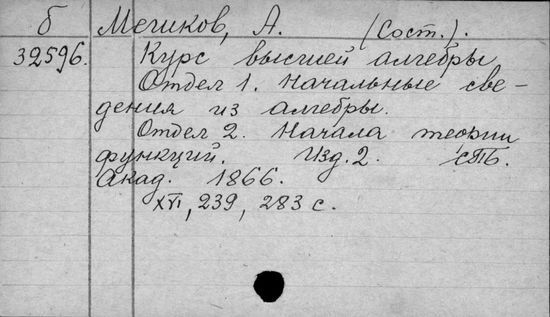 б Мешков, А. (Сост.).
32596. Курс высшей алгебры
Отдел 1. Начальные све-
дения из алгебры.
Отдел 2. Начала теории
функций. Изд. 2. СПБ.
Акад. 1866.
XVI, 239, 283 с.